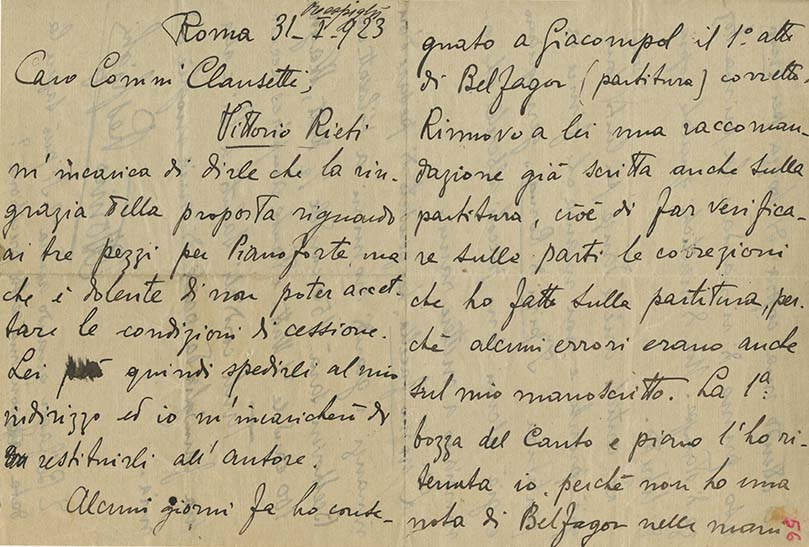 Roma 31_I_923
Caro Comm. Clausetti,
Vittorio Rieti
m'incarica di dirle che la rin-
grazia della proposta riguardo
ai tre pezzi per Pianoforte ma
che è dolente di non poter accet-
tare le condizioni di cessione.
Lei può quindi spedirli al mio
indirizzo ed io m'incaricherò di
restituirli all'autore.
Alcuni giorni fa ho conse-
gnato a Giacompol il 1º atto
di Belfagor (partitura) corretto.
Rinnovo a lei una raccoman-
dazione già scritta anche sulla
partitura, cioè di far verifica-
re sulle parti le correzioni
che ho fatte sulla partitura, per-
chè alcuni errori erano anche
sul mio manoscritto. La 1ª
bozza del Canto e piano l'ho ri-
tenuta io, perchè non ho una
nota di Belfagor nelle mani
56